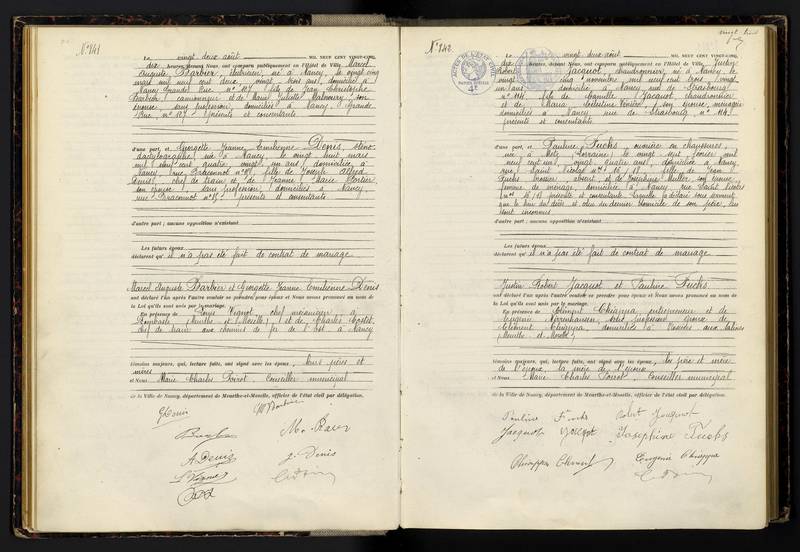 N° 741
Le vingt deux août MIL NEUF CENT VINGT-CINQ,
dix heures, devant Nous, ont comparu publiquement en l'Hôtel de Ville, Marcel
Auguste Barbier, né à Nancy, le vingt cinq
mai mil neuf cent deux, vingt trois ans, domicilié à
Nancy Grande Rue n° 127 fils de Jean Christophe
Barbier, et de Marie Juliette son
épouse, sans profession, domiciliés à Nancy, Grande
Rue n° 127 présents et consentants
d'une part, et Georgette Jeanne Emilienne Denis, sténo
dactylographe née à Nancy le vingt huit mars
mil neuf cent quatre, vingt un ans, domiciliée à
Nancy rue Braconnot n° fille de Joseph Alfred
Denis, chef de train et de Jeanne Marie
son épouse, sans profession, domiciliés à Nancy,
rue Braconnot n° présents et consentants
d'autre part ; aucune opposition n'existant
Les futurs époux
déclarent qu'il n'a pas été fait de contrat de mariage
Marcel Auguste Barbier et Georgette Jeanne Emilienne Denis
ont déclaré l'un après l'autre vouloir se prendre pour époux et Nous avons prononcé au nom de
la Loi qu'ils sont unis par le mariage.
En présence de Louis Vagnot chef mécanicien à
Dombasle (Meurthe et Moselle) et de Charles
chef de train aux chemins de fer de l'Est à Nancy
témoins majeurs, qui, lecture faite, ont signé avec les époux, leurs pères et
mères
et Nous Marie Charles Poirot, Conseiller municipal
de la Ville de Nancy, département de Meurthe-et-Moselle, officier de l'état civil par délégation.
G Denis
Barbier
A. Denis J. Denis
N° 742
Le vingt deux août MIL NEUF CENT VINGT-CINQ,
dix heures, devant Nous, ont comparu publiquement en l'Hôtel de Ville, Justin
Robert Jacquot, chaudronnier, né à Nancy le
vingt cinq novembre mil neuf cent trois, vingt
un ans, domicilié à Nancy rue de Strasbourg
n° 114 fils de Camille Jacquot, chaudronnier
et de Maria Célestine son épouse, ménagère
domiciliés à Nancy rue de Strasbourg, n° 114
présents et consentants
d'une part, et Pauline Fuchs, ouvrière en chaussures,
née à Metz (Lorraine) le vingt sept février mil
neuf cent un, vingt quatre ans, domiciliée à Nancy
rue Saint Nicolas n° 16, fille de Jean
Fuchs absent et de Joséphine Muller, son épouse,
femme de ménage, domiciliée à Nancy rue Saint Nicolas
n° 16, présente et consentante. Laquelle a déclaré sous serment
que le lieu du décès et celui du dernier domicile de son père, lui
sont inconnus
d'autre part ; aucune opposition n'existant
Les futurs époux
déclarent qu'il n'a pas été fait de contrat de mariage
Justin Robert Jacquot et Pauline Fuchs
ont déclaré l'un après l'autre vouloir se prendre pour époux et Nous avons prononcé au nom de
la Loi qu'ils sont unis par le mariage.
En présence de Clément Chiappa, entrepreneur et de
Eugénie sans profession épouse de
Clément Chiappa, domiciliés à
(Meurthe et Moselle)
témoins majeurs, qui, lecture faite, ont signé avec les époux, les père et mère
de l'époux, la mère de l'épouse
et Nous Marie Charles Poirot, Conseiller municipal
de la Ville de Nancy, département de Meurthe-et-Moselle, officier de l'état civil par délégation.
Pauline Fuchs Robert Jacquot
Jacquot Jacquot Joséphine Fuchs
Chiappa Clément Eugénie Chiappa